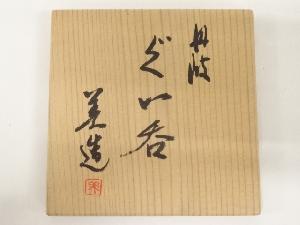 丹波
ぐい呑
美造